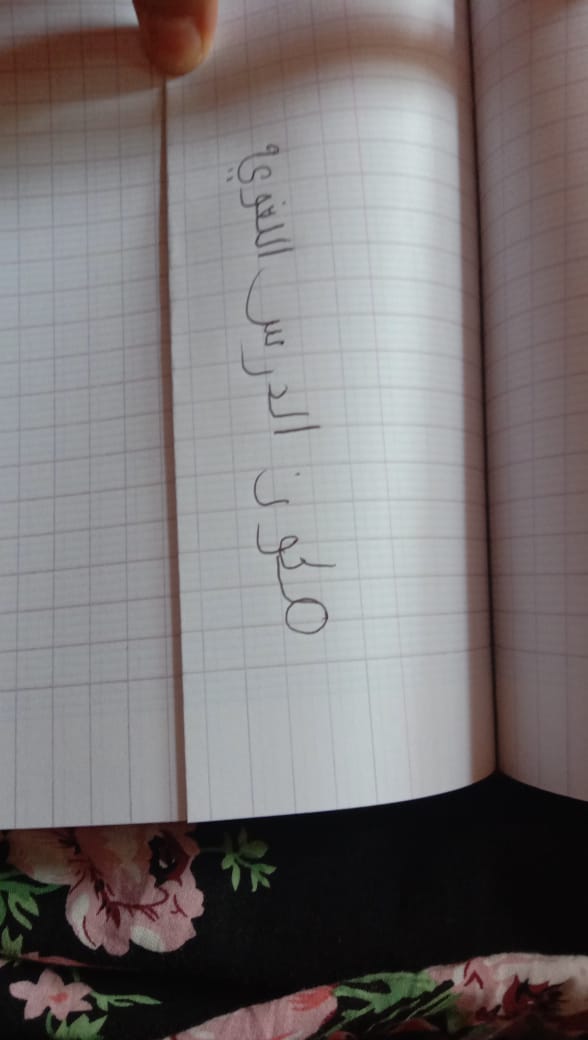 مكون الدرس اللغوي